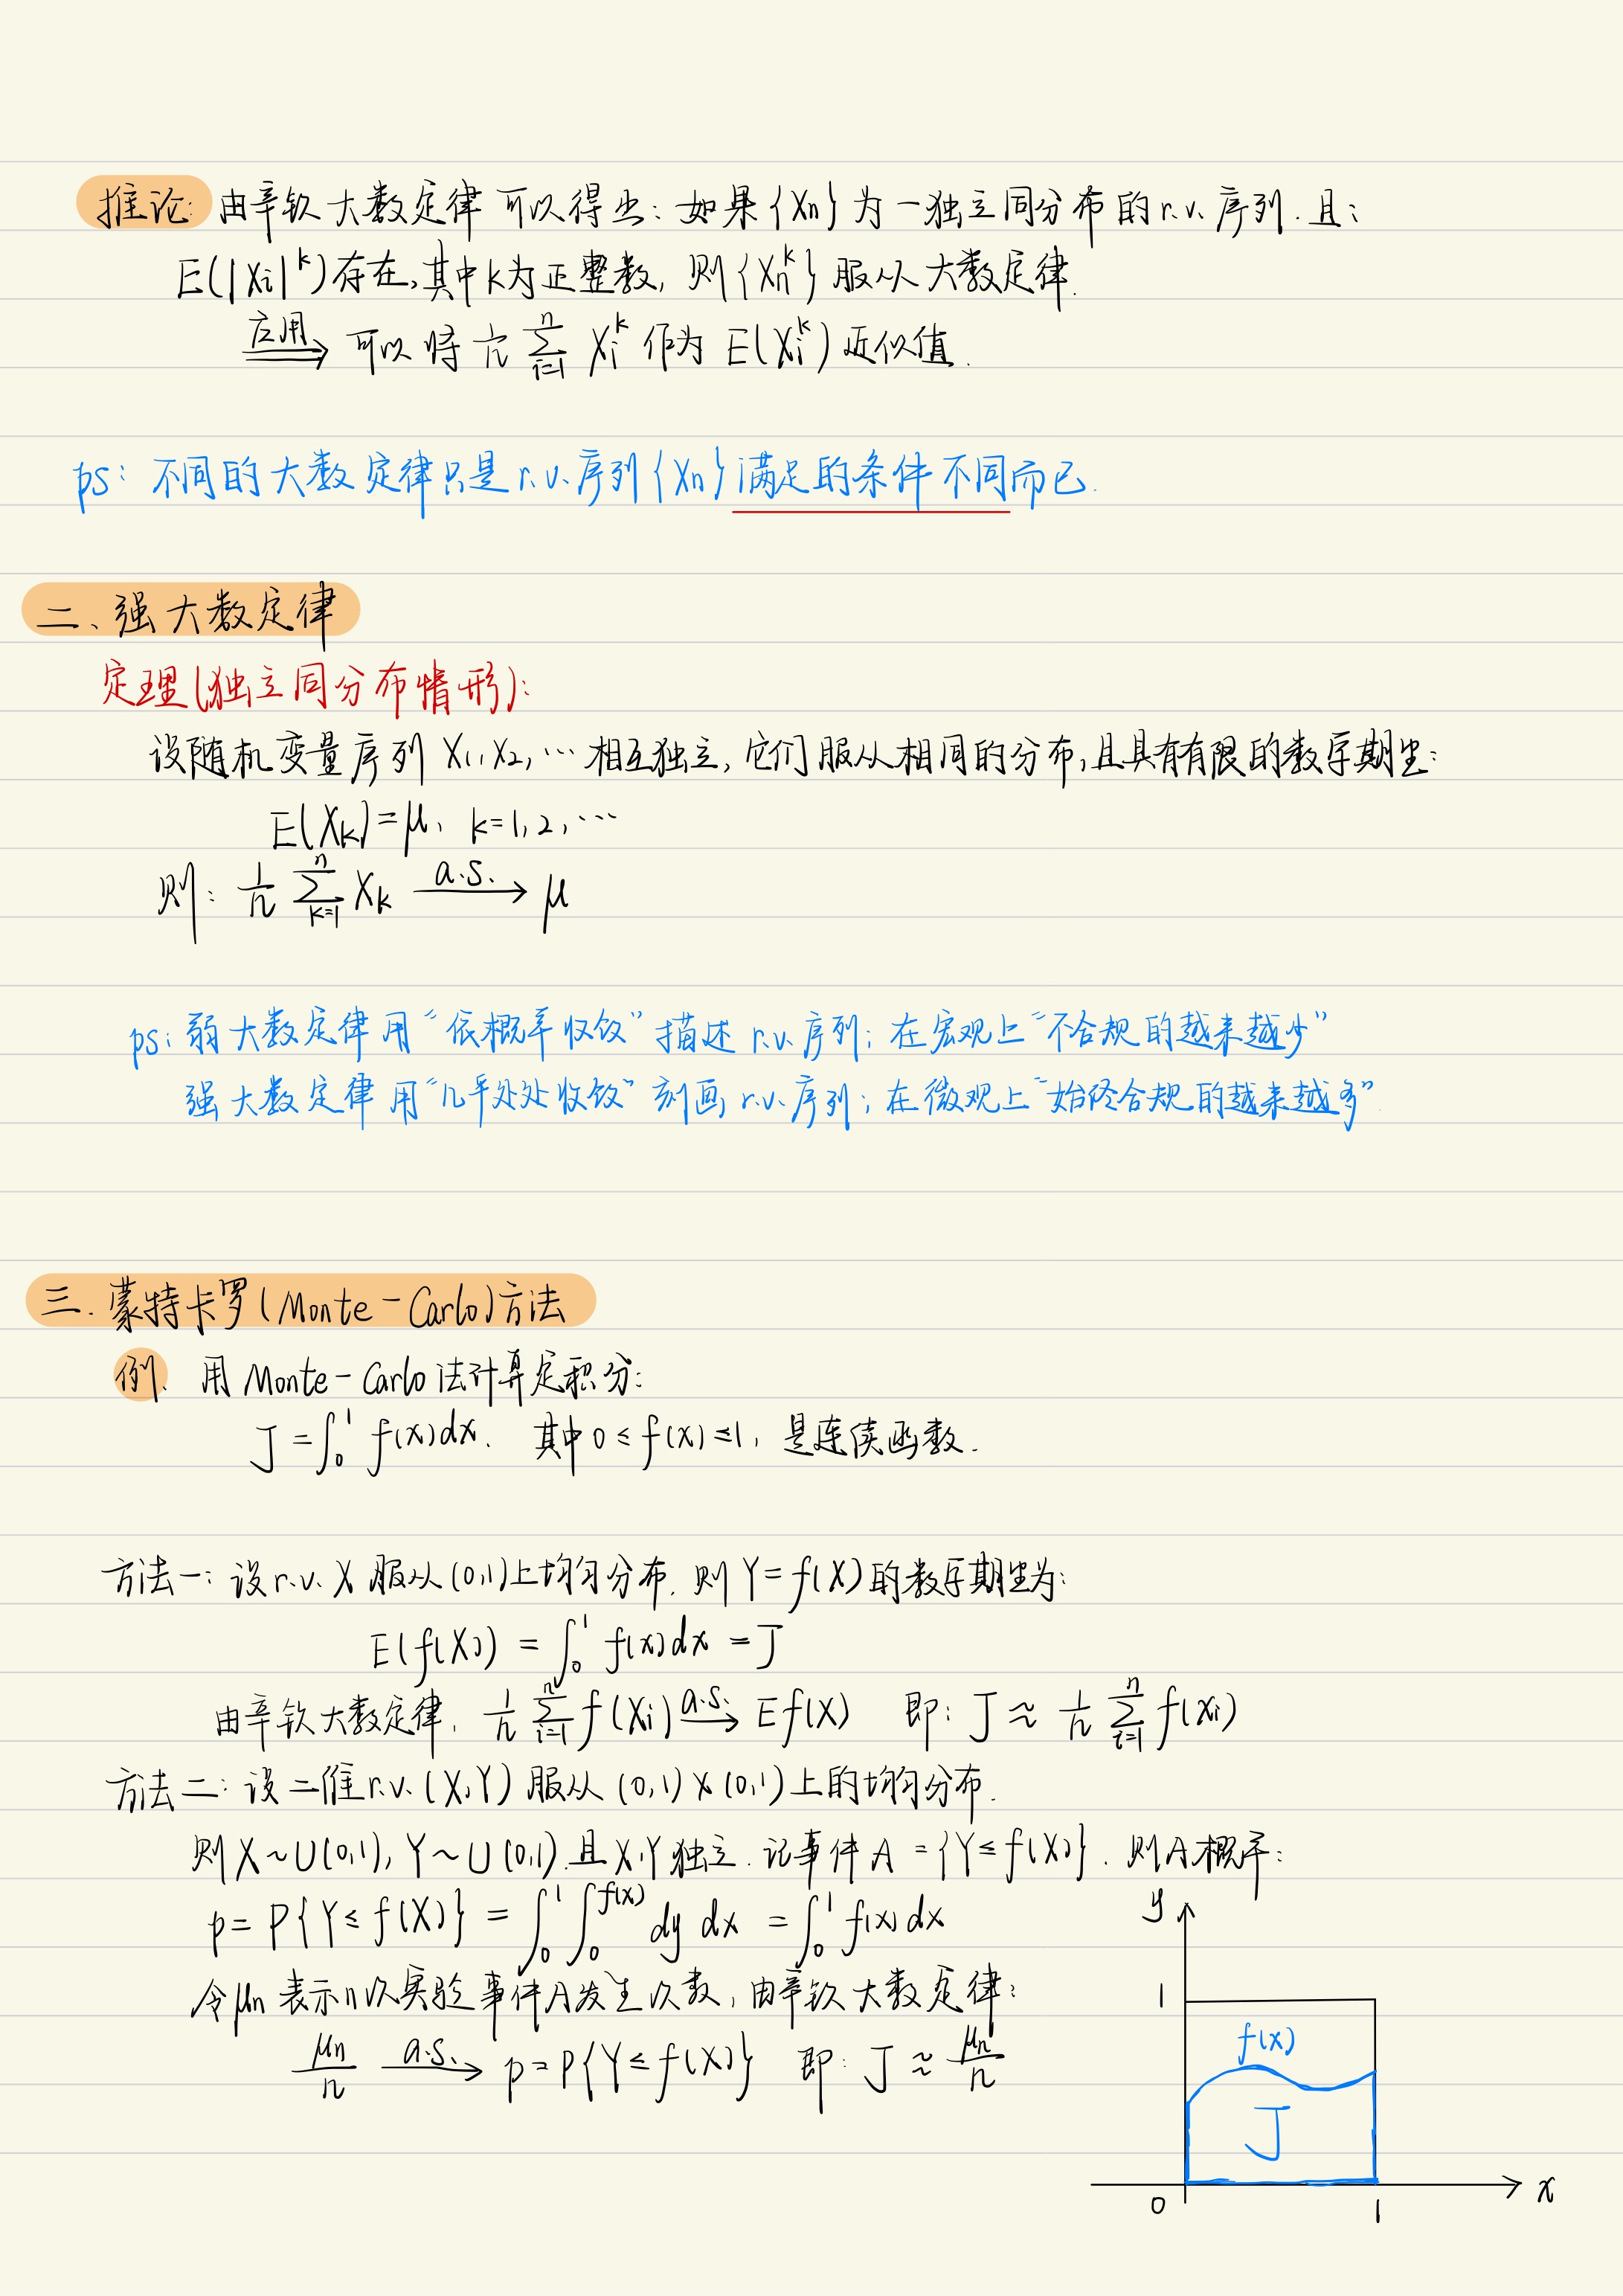 推论: 由辛钦大数定律可以得出: 如果{Xn}为一独立同分布的r.v.序列.且:
E(|Xi|^k)存在,其中k为正整数, 则{Xn^k}服从大数定律.
应用⟹ 可以将 1/n ∑_{i=1}^{n} Xi^k 作为 E(Xi^k) 近似值.
ps: 不同的大数定律只是r.v.序列{Xn}满足的条件不同而已.
二、强大数定律
定理(独立同分布情形):
设随机变量序列 X1,X2,⋯相互独立,它们服从相同的分布,且具有有限的数学期望:
E(Xk)=μ, k=1,2,⋯
则: 1/n ∑_{k=1}^{n} Xk —a.s.→ μ
ps: 弱大数定律用“依概率收敛”描述 r.v.序列; 在宏观上“不合规的越来越少”
强大数定律用“几乎处处收敛”刻画 r.v.序列; 在微观上“始终合规的越来越多”.
三.蒙特卡罗(Monte-Carlo)方法
例. 用Monte-Carlo法计算定积分:
J=∫_0^1 f(x)dx. 其中0≤f(x)≤1, 是连续函数.
方法一: 设r.v. X 服从(0,1)上均匀分布. 则Y=f(X)的数学期望为:
E(f(X)) = ∫_0^1 f(x)dx = J
由辛钦大数定律, 1/n ∑_{i=1}^{n} f(Xi) —a.s.→ Ef(X) 即: J ≈ 1/n ∑_{i=1}^{n} f(xi)
方法二: 设二维r.v.(X,Y) 服从 (0,1)×(0,1)上的均匀分布.
则X~U(0,1), Y~U(0,1).且X,Y独立.记事件A={Y≤f(X)}. 则A概率:
p=P{Y≤f(X)} = ∫_0^1 ∫_0^{f(x)} dy dx = ∫_0^1 f(x)dx
令μn表示n次实验事件A发生次数, 由辛钦大数定律:
μn/n —a.s.→ p=P{Y≤f(X)} 即: J ≈ μn/n
y
1
f(x)
J
0
1
x